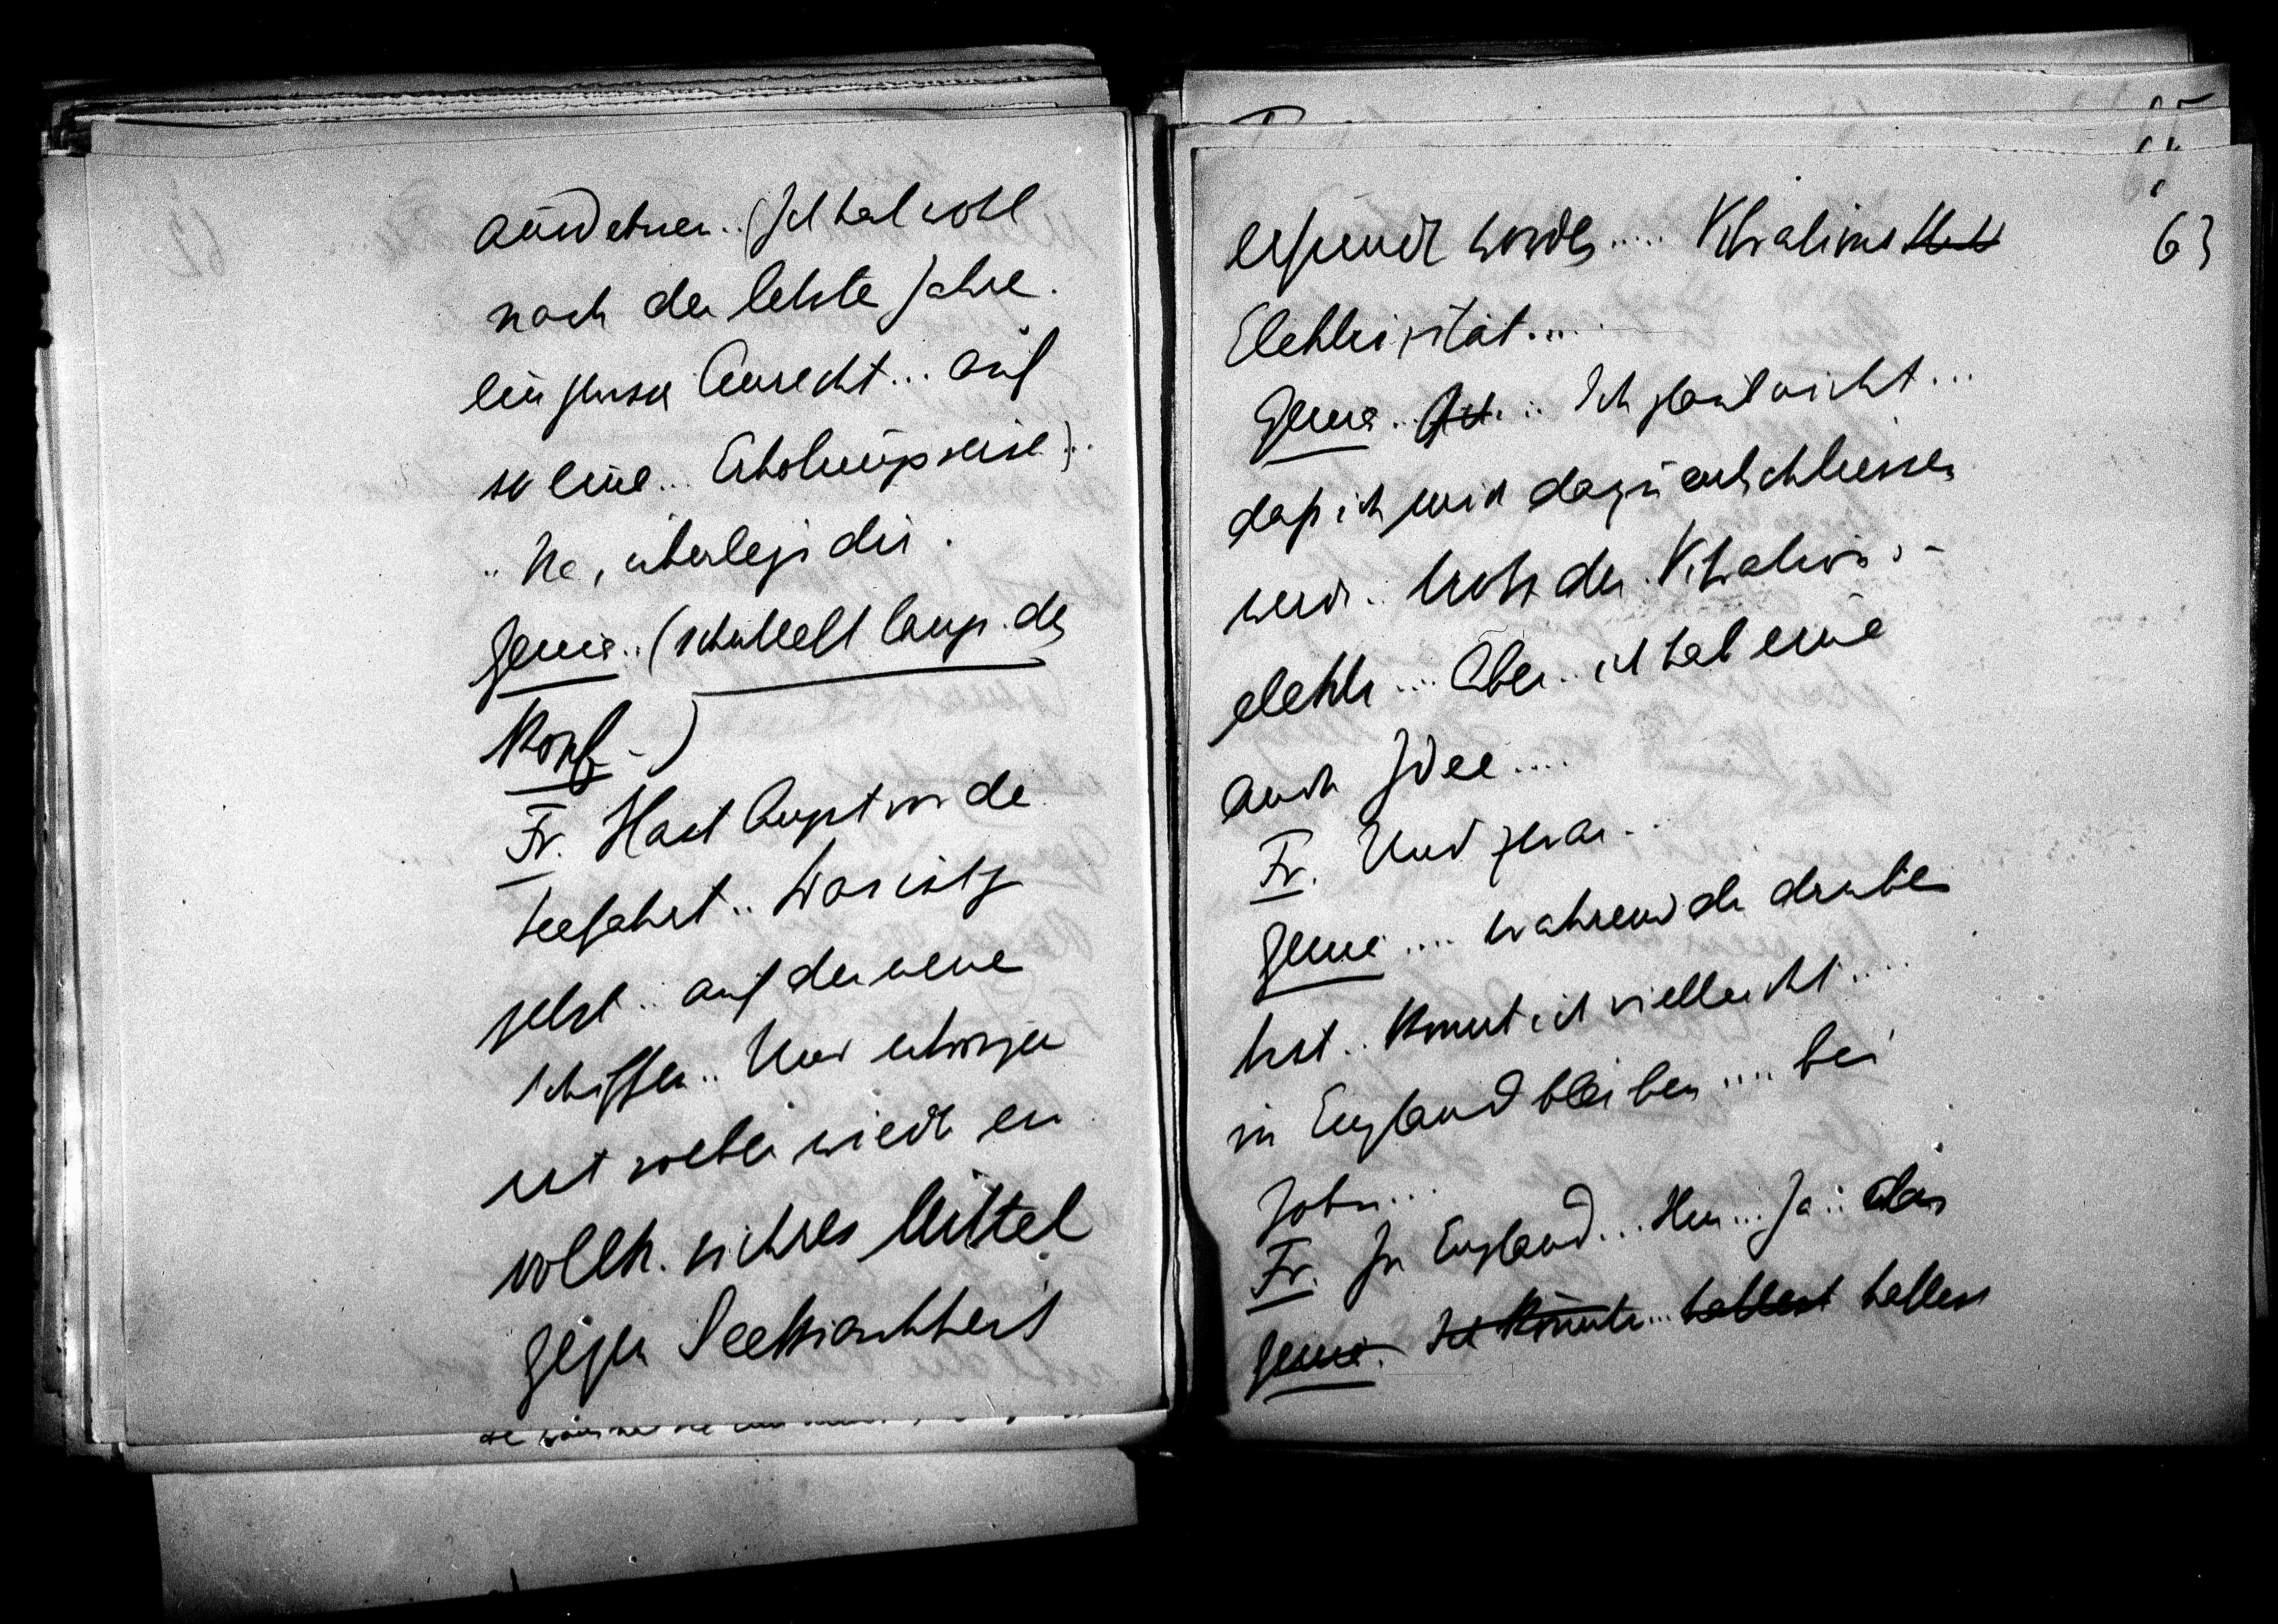 ausdehnen.. (Ich hab wohl
nach der letzte Jahre.
ein gewisse Anrecht... auf
so eine.. Erholungsreise)..
.. Na, überlegs dir.
Genia.. (schüttelt langs. den
Kopf -)
Fr. Hast Angst vor de
Seefahrt.. Was ists
jetzt.. auf der neue
Schiffen.. Und übrigen
ist soeben wiedr ein
vollk. sichres Mittel
gegen Seekrankheit
63
erfundn worden..... Vibrations
Elektrizität....
Genia.. Ich.... Ich glaub nicht...
daß ich mich dazu entschliessen
werd.. trotz der Vibrations-
elektr.... Aber.. ich hab eine
andr Idee....
Fr. Und zwar...
Genia.... während du drüben
bist.. könnt ich vielleicht....
in England bleiben.... bei
John...
Fr. In England... Hm... Ja.. das
Genia. Ich könnte... hättest hättest